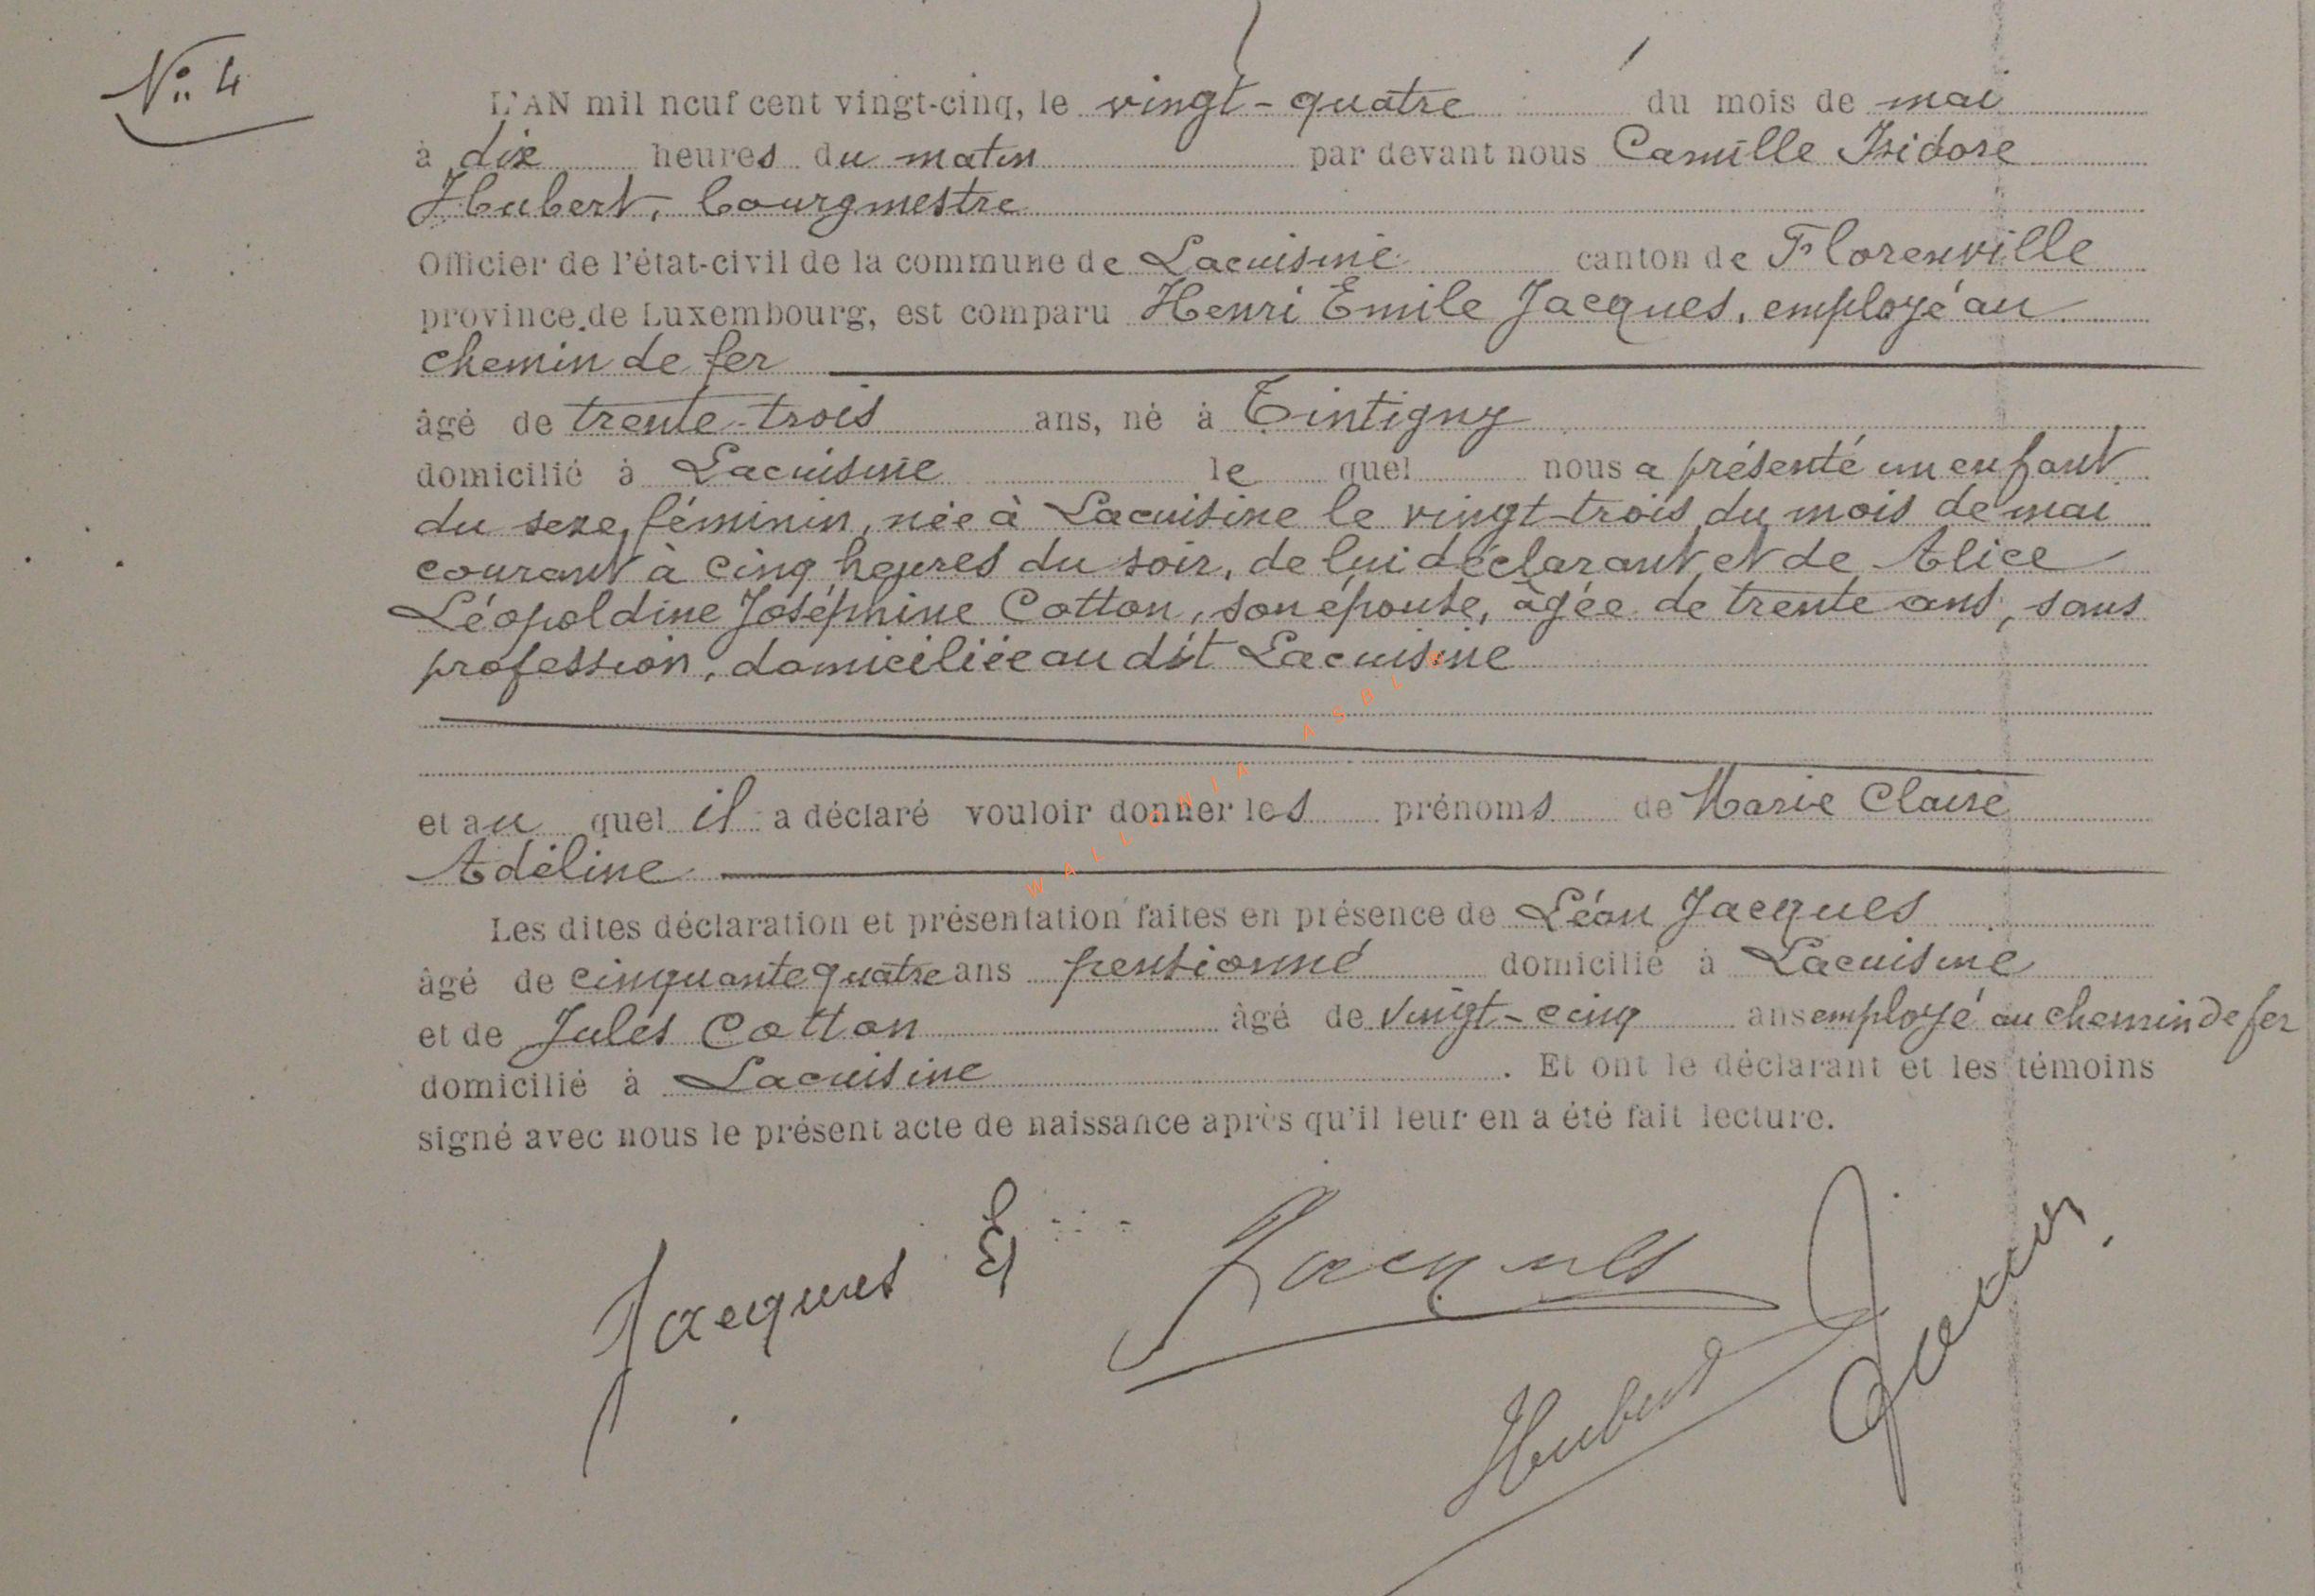 N° 4
L'AN mil neuf cent vingt-cinq, le vingt-quatre du mois de mai
à dix heures du matin par devant nous Camille Isidore
Hubert, bourgmestre
Officier de l'état-civil de la commune de Lacuisine canton de Florenville
province de Luxembourg, est comparu Henri Emile Jacques, employé au
chemin de fer
âgé de trente-trois ans, né à Tintigny
domicilié à Lacuisine le quel nous a présenté un enfant
du sexe féminin, née à Lacuisine le vingt-trois du mois de mai
courant à cinq heures du soir, de lui déclarant et de Alice
Léopoldine Joséphine Cotton, son épouse, âgée de trente ans, sans
profession, domiciliée au dit Lacuisine
et au quel il a déclaré vouloir donner les prénoms de Marie Claire
Adéline
Les dites déclaration et présentation faites en présence de Léon Jacques
âgé de cinquante quatre ans pensionné domicilié à Lacuisine
et de Jules Cotton âgé de vingt-cinq ans employé au chemin de fer
domicilié à Lacuisine . Et ont le déclarant et les témoins
signé avec nous le présent acte de naissance après qu'il leur en a été fait lecture.
Jacques E Jacques
Hubert
WALLONIA ASBL